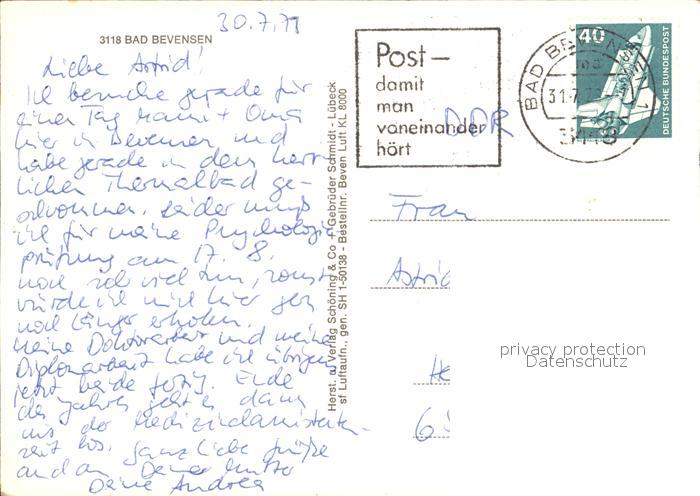 30.7.79
3118 BAD BEVENSEN
Liebe Astrid!
Ich besuche gerade für
einen Tag Mami + Oma
hier in Bevensen und
habe gerade in dem herr-
lichen Thermalbad ge-
schwommen. Leider muß
ich für meine Psychologie-
prüfung am 17. 8.
noch sehr viel tun, sonst
würde ich mich hier gern
noch länger erholen.
Meine Doktorarbeit und meine
Diplomarbeit habe ich übrigens
jetzt beide fertig. Ende
des Jahres geht es dann
mit der Medizinalassistenten-
zeit los. Ganz liebe Grüße
auch an Deine Mutter
Deine Andrea
Herst. u. Verlag Schöning & Co + Gebrüder Schmidt - Lübeck
sf Luftaufn., gen. SH 1-50138 - Bestellnr. Beven Luft KL 8000
Post –
damit
man
voneinander
hört
BAD BEVENSEN 1
31.7.79
3118
40
DEUTSCHE BUNDESPOST
DDR
Frau
Astrid
He
6
privacy protection
Datenschutz